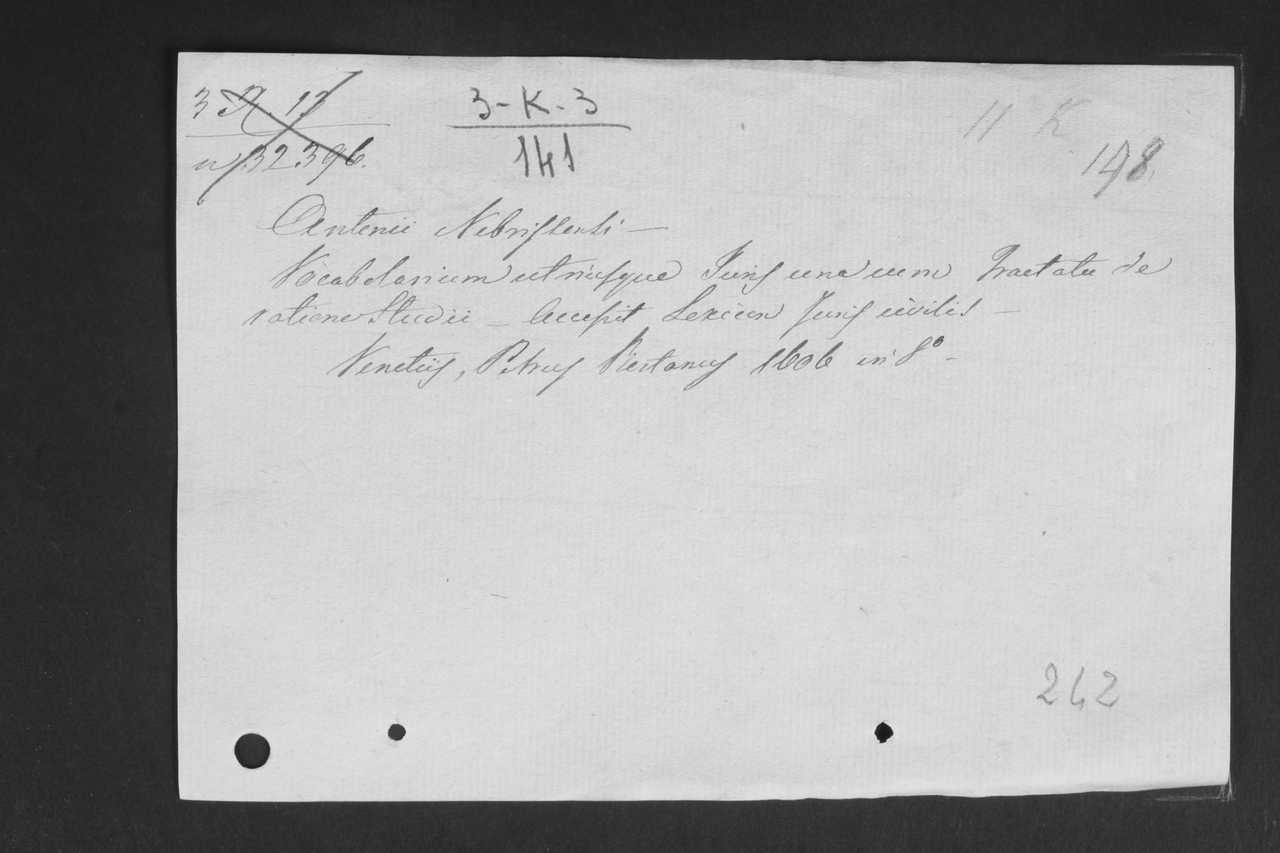 3-K-3
141
11 K
198.
Antonii Nebrissensi —
Vocabolarium utriusque Juris una cum Tractatu de
ratione Studii — Accessit Lexicon Juris civilis —
Venetiis, Petrus 1606 in 8° —
242